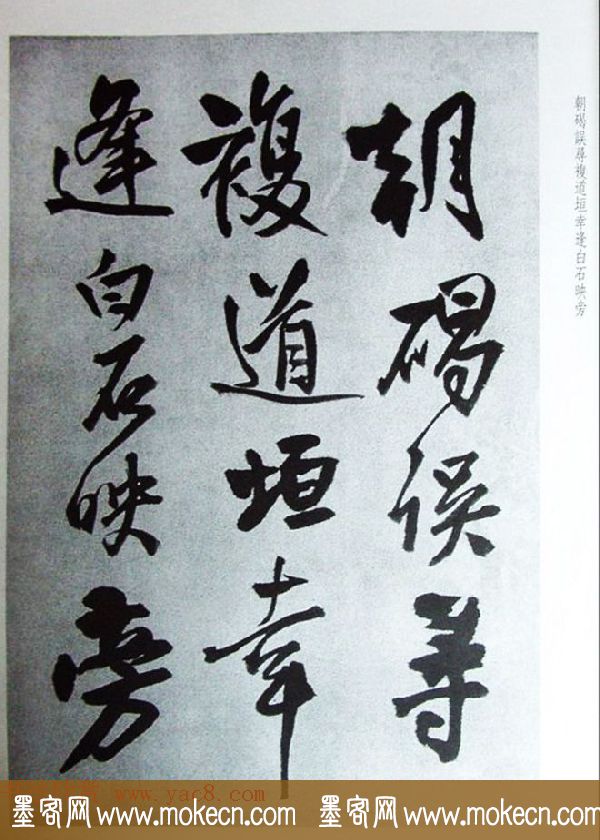 朝碣誤尋
複道垣幸
逢白石映旁
朝碣誤尋複道垣幸逢白石映旁
www.yac8.com
墨客网 www.mokecn.com 墨客网 www.mokecn.com